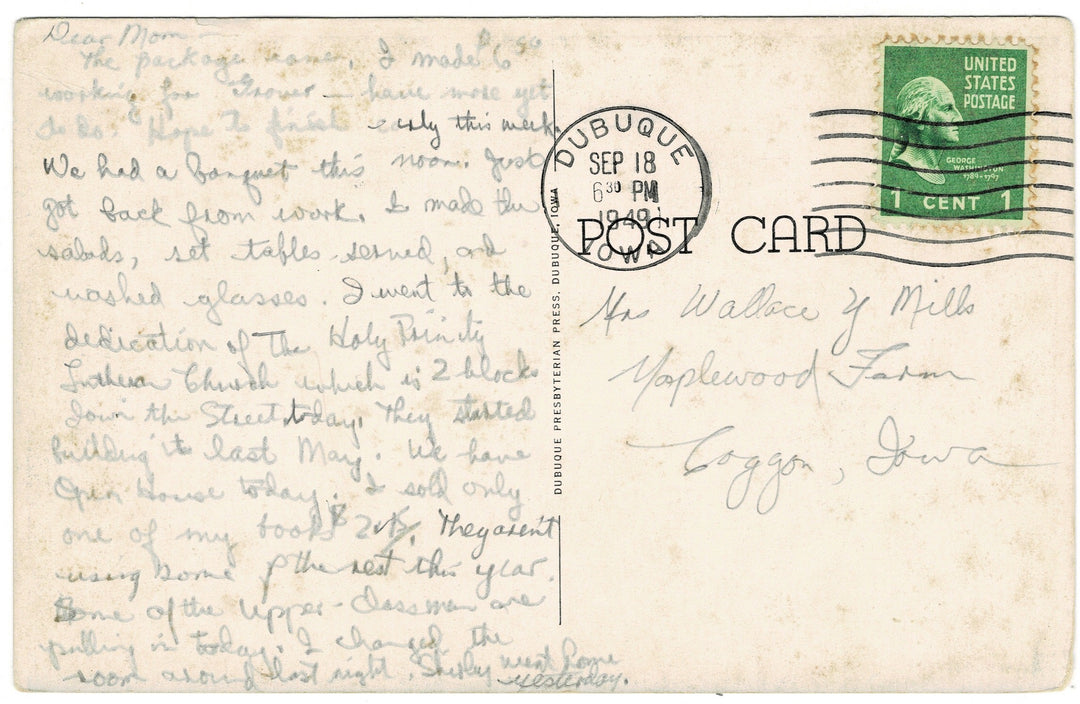 Dear Mom –
The package came. I made $6
working for Grover – have more yet
to do. Hope to finish early this week.
We had a banquet this noon. Just
got back from work. I made the
salads, set tables served, and
washed glasses. I went to the
dedication of The Holy Trinity
Lutheran Church which is 2 blocks
down the Street today. They started
building it last May. We have
Open House today. I sold only
one of my books $2. They aren't
using some of the rest this year.
Some of the Upper-Classman are
pulling in today. I changed the
room around last night. Shirley went home
yesterday.
DUBUQUE PRESBYTERIAN PRESS, DUBUQUE, IOWA
DUBUQUE
SEP 18
6 30 PM
1949
IOWA
UNITED
STATES
POSTAGE
GEORGE
WASHINGTON
1789-1797
1 CENT 1
POST CARD
Mrs Wallace Y Mills
Maplewood Farm
Coggon, Iowa